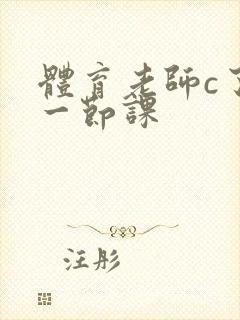 體育老師c了
一節課
汪彤